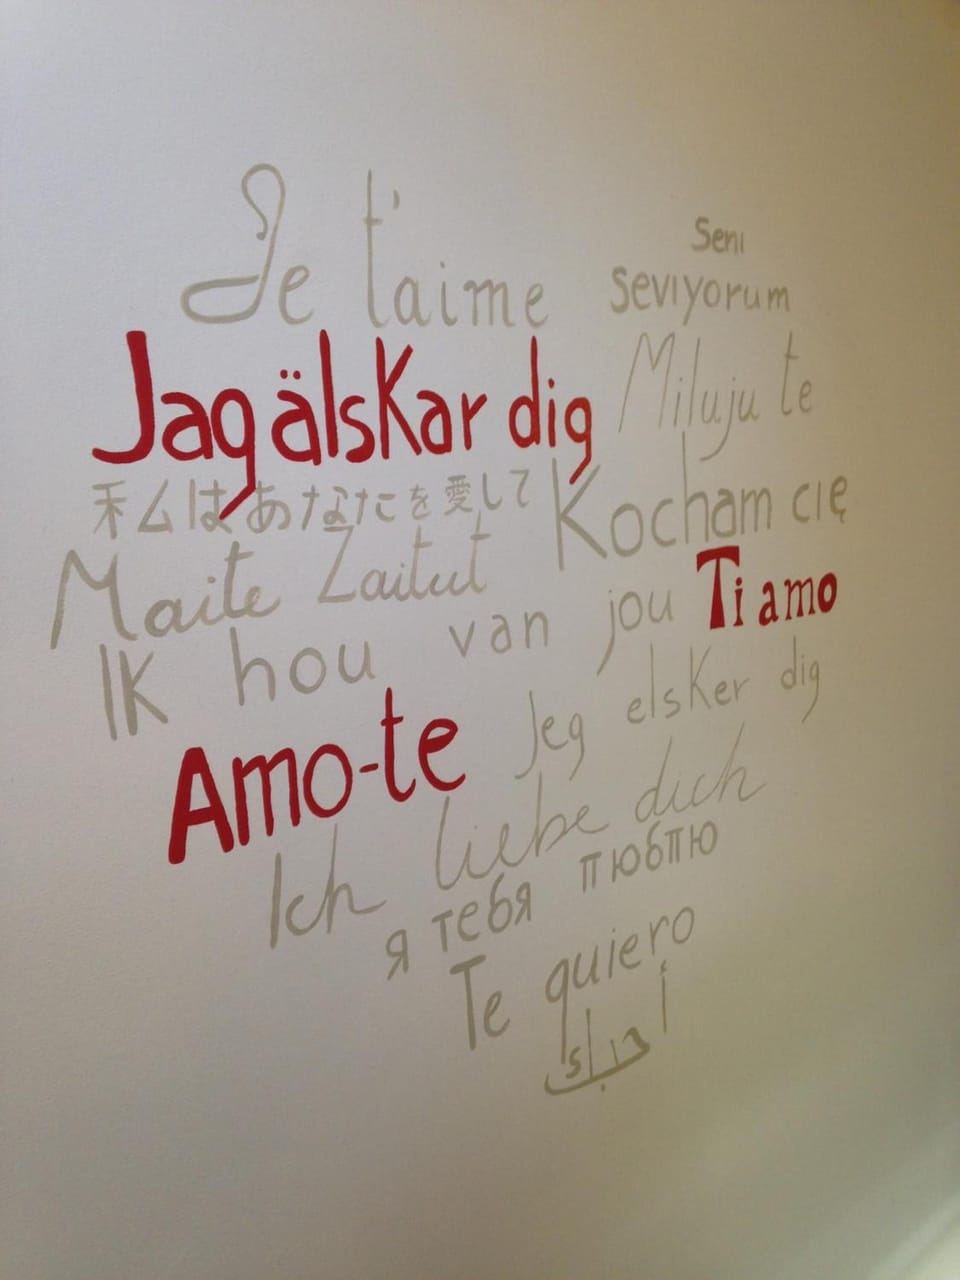 Je t'aime
Seni
sevıyorum
Jag älskar dig
Miluju te
私はあなたを愛して
Kocham cıę
Maite Zaitut
Ik hou van jou
Ti amo
Amo-te
Jeg elsker dig
Ich liebe dich
я тебя пюбпю
Te quiero
أحبك